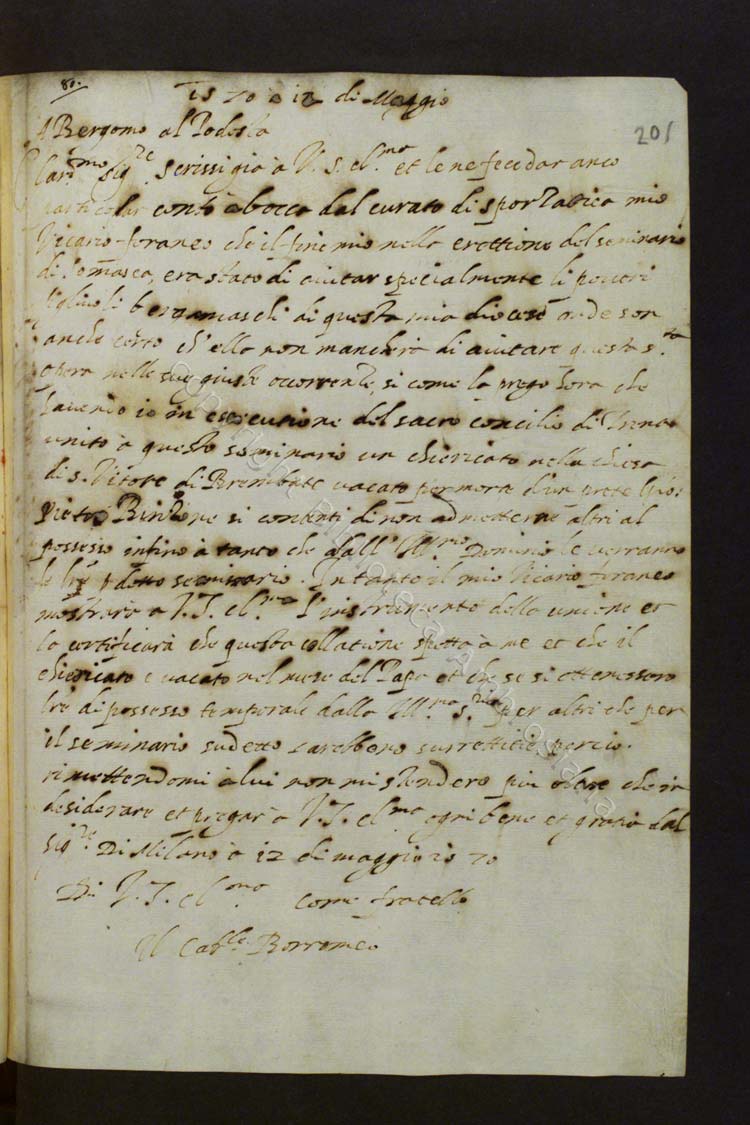 80.
1570 a 12 di Maggio
201
A Bergomo al Podestà
Clar.mo Sig.re scrissi già à V. S. cl.ma et le ne feci dar anco
particolar conto à bocca dal curato di sportatica mio
Vicario foraneo che il fine mio nella erettione del seminario
di Somasca, era stato di aiutar specialmente li poveri
figliuoli bergamaschi di questa mia diocese onde son
anche certo ch'ella non mancherà di aiutare questa s.ta
opera nelle sue giuste occorrente, si come la prego hora che
havendo io in essecutione del sacro concilio di Trento
unito à questo seminario un chiericato nella chiesa
di s. Vitore di Brembate vacato per morte d'un prete
Pietro si contenti di non admetterne altri al
possesso infino à tanto che dall' Ill.mo Dominio le verranno
le lre p detto seminario. In tanto il mio Vicario foraneo
mostrarà a V. S. cl.ma l'instrumento della unione et
la certificarà che questa collatione spetta à me et che il
chiericato è vacato nel mese del Papa et che se si ottenessero
lre di possesso temporale dalla Ill.ma S.ria per altri che per
il seminario sudetto sarebbono surrettitie perciò.
rimettendomi à lui non mi stenderò più oltre che in
desiderare et pregar à V. S. cl.ma ogni bene et gratia dal
Sig.re Di Milano à 12 di maggio 1570
Di V. S. cl.ma come fratello
Il Car.le Borromeo